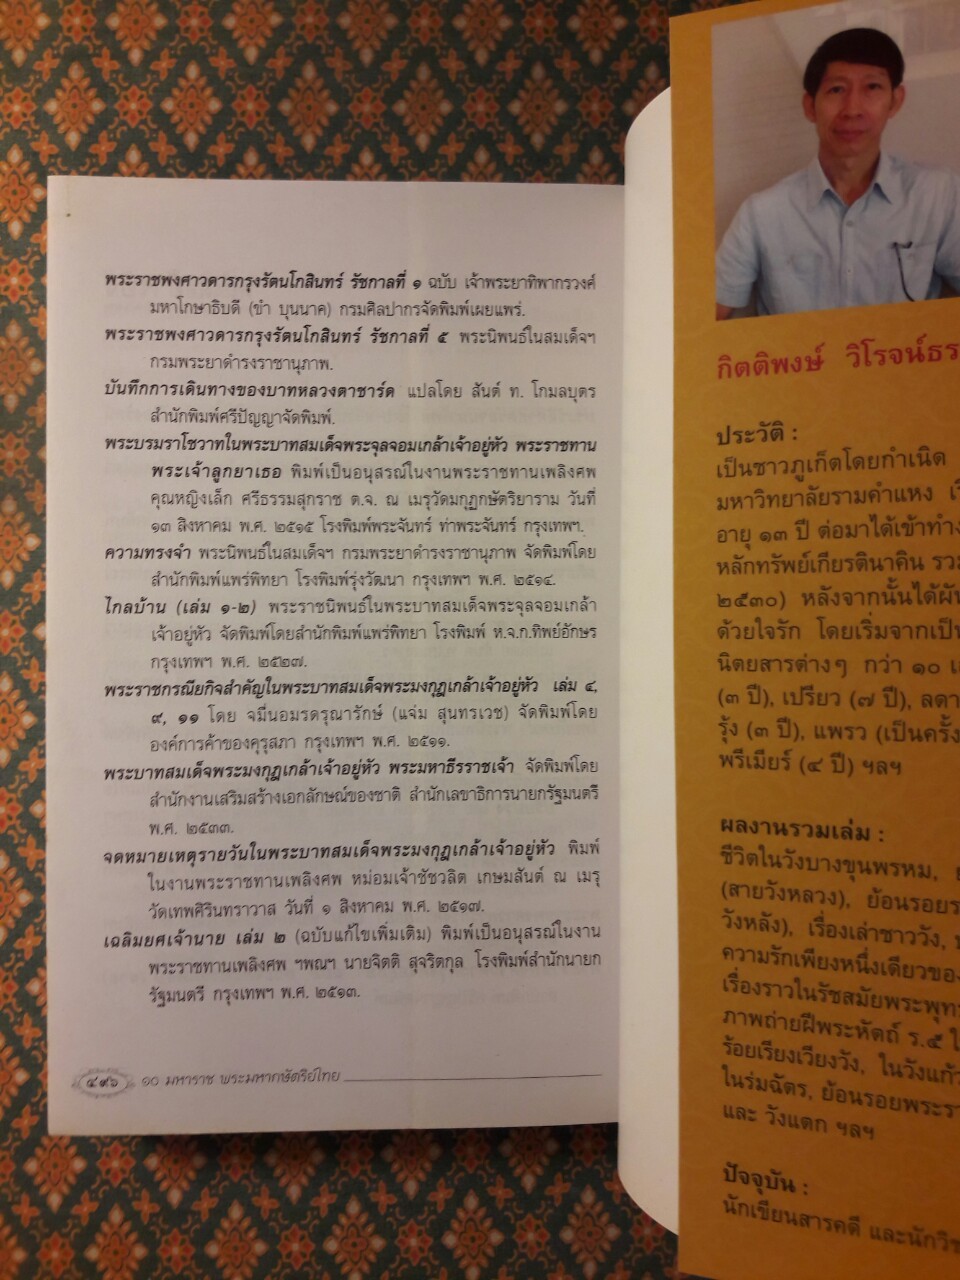 พระราชพงศาวดารกรุงรัตนโกสินทร์ รัชกาลที่ ๑ ฉบับ เจ้าพระยาทิพากรวงศ์
มหาโกษาธิบดี (ขำ บุนนาค) กรมศิลปากรจัดพิมพ์เผยแพร่.
พระราชพงศาวดารกรุงรัตนโกสินทร์ รัชกาลที่ ๕ พระนิพนธ์ในสมเด็จฯ
กรมพระยาดำรงราชานุภาพ.
บันทึกการเดินทางของบาทหลวงตาชาร์ด แปลโดย สันต์ ท. โกมลบุตร
สำนักพิมพ์ศรีปัญญาจัดพิมพ์.
พระบรมราโชวาทในพระบาทสมเด็จพระจุลจอมเกล้าเจ้าอยู่หัว พระราชทาน
พระเจ้าลูกยาเธอ พิมพ์เป็นอนุสรณ์ในงานพระราชทานเพลิงศพ
คุณหญิงเล็ก ศรีธรรมสุกราช ต.จ. ณ เมรุวัดมกุฏกษัตริยาราม วันที่
๑๓ สิงหาคม พ.ศ. ๒๕๑๕ โรงพิมพ์พระจันทร์ ท่าพระจันทร์ กรุงเทพฯ.
ความทรงจำ พระนิพนธ์ในสมเด็จฯ กรมพระยาดำรงราชานุภาพ จัดพิมพ์โดย
สำนักพิมพ์แพร่พิทยา โรงพิมพ์รุ่งวัฒนา กรุงเทพฯ พ.ศ. ๒๕๑๔.
ไกลบ้าน (เล่ม ๑-๒) พระราชนิพนธ์ในพระบาทสมเด็จพระจุลจอมเกล้า
เจ้าอยู่หัว จัดพิมพ์โดยสำนักพิมพ์แพร่พิทยา โรงพิมพ์ ห.จ.ก.ทิพย์อักษร
กรุงเทพฯ พ.ศ. ๒๕๒๗.
พระราชกรณียกิจสำคัญในพระบาทสมเด็จพระมงกุฎเกล้าเจ้าอยู่หัว เล่ม ๔,
๙, ๑๑ โดย จมื่นอมรดรุณารักษ์ (แจ่ม สุนทรเวช) จัดพิมพ์โดย
องค์การค้าของคุรุสภา กรุงเทพฯ พ.ศ. ๒๕๑๑.
พระบาทสมเด็จพระมงกุฎเกล้าเจ้าอยู่หัว พระมหาธีรราชเจ้า จัดพิมพ์โดย
สำนักงานเสริมสร้างเอกลักษณ์ของชาติ สำนักเลขาธิการนายกรัฐมนตรี
พ.ศ. ๒๕๓๓.
จดหมายเหตุรายวันในพระบาทสมเด็จพระมงกุฎเกล้าเจ้าอยู่หัว พิมพ์
ในงานพระราชทานเพลิงศพ หม่อมเจ้าชัชวลิต เกษมสันต์ ณ เมรุ
วัดเทพศิรินทราวาส วันที่ ๑ สิงหาคม พ.ศ. ๒๕๑๗.
เฉลิมยศเจ้านาย เล่ม ๒ (ฉบับแก้ไขเพิ่มเติม) พิมพ์เป็นอนุสรณ์ในงาน
พระราชทานเพลิงศพ ฯพณฯ นายจิตติ สุจริตกุล โรงพิมพ์สำนักนายก
รัฐมนตรี กรุงเทพฯ พ.ศ. ๒๕๑๓.
๔๙๖ ๑๐ มหาราช พระมหากษัตริย์ไทย
กิตติพงษ์ วิโรจน์ธร
ประวัติ :
เป็นชาวภูเก็ตโดยกำเนิด
มหาวิทยาลัยรามคำแหง
อายุ ๑๓ ปี ต่อมาได้เข้าทำง
หลักทรัพย์เกียรตินาคิน รวม
๒๕๓๐) หลังจากนั้นได้ผัน
ด้วยใจรัก โดยเริ่มจากเป็น
นิตยสารต่างๆ กว่า ๑๐
(๓ ปี), เปรียว (๗ ปี), ลดา
รุ้ง (๓ ปี), แพรว (เป็นครั้ง
พรีเมียร์ (๔ ปี) ฯลฯ
ผลงานรวมเล่ม :
ชีวิตในวังบางขุนพรหม,
(สายวังหลวง), ย้อนรอยร
วังหลัง), เรื่องเล่าชาววัง,
ความรักเพียงหนึ่งเดียวของ
เรื่องราวในรัชสมัยพระพุท
ภาพถ่ายฝีพระหัตถ์ ร.๕ ใ
ร้อยเรียงเวียงวัง, ในวังแก้ว
ในร่มฉัตร, ย้อนรอยพระรา
และ วังแดก ฯลฯ
ปัจจุบัน :
นักเขียนสารคดี และนักวิช